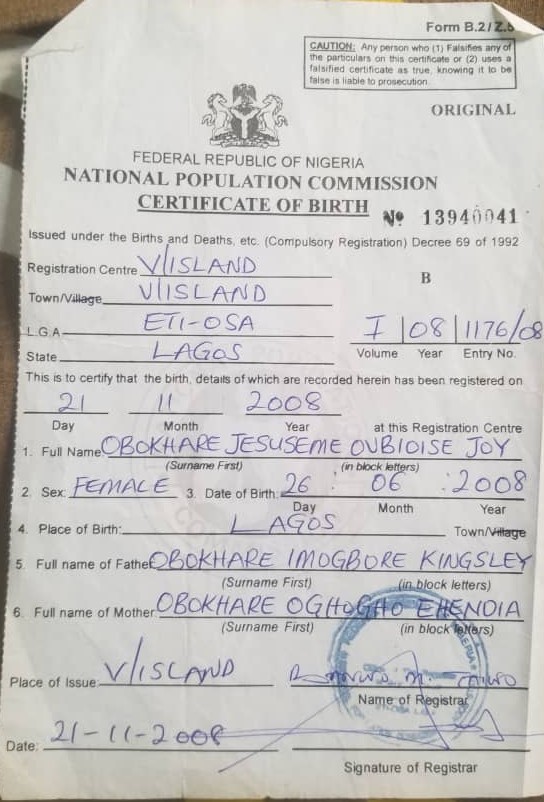 Form B.2/Z.
CAUTION: Any person who (1) Falsifies any of
the particulars on this certificate or (2) uses a
falsified certificate as true, knowing it to be
false is liable to prosecution.
ORIGINAL
FEDERAL REPUBLIC OF NIGERIA
NATIONAL POPULATION COMMISSION
CERTIFICATE OF BIRTH № 13940041
Issued under the Births and Deaths, etc. (Compulsory Registration) Decree 69 of 1992
Registration Centre V/ISLAND
B
Town/Village V/ISLAND
L.G.A. ETI-OSA
I 08 1176/08
State LAGOS
Volume Year Entry No.
This is to certify that the birth, details of which are recorded herein has been registered on
21 11 2008
Day Month Year at this Registration Centre
1. Full Name OBOKHARE JESUSEME OVBIOISE JOY
(Surname First) (in block letters)
2. Sex: FEMALE 3. Date of Birth: 26 : 06 : 2008
Day Month Year
4. Place of Birth: LAGOS Town/Village
5. Full name of Father OBOKHARE IMOGBORE KINGSLEY
(Surname First) (in block letters)
6. Full name of Mother OBOKHARE OGHOGHO EHENDIA
(Surname First) (in block letters)
Place of Issue: V/ISLAND
Name of Registrar
Date: 21-11-2008
Signature of Registrar